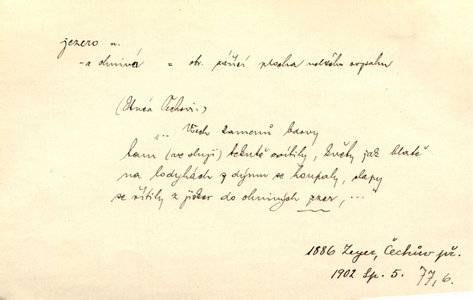 jezero n.
-a ohnivá = obr. pářící plocha velkého rozsahu
(Utváří Čechovi.)
„.. Všech démonů barvy
tam (ve sluji) tekutě svítily, květy jak blatě
na lodyhách z dýmu se houpaly, slapy
se řítily z jícer do ohnivých jezer, ..."
1886 Zeyer, Čechův př.
1902 Sp. 5. 77, 6.